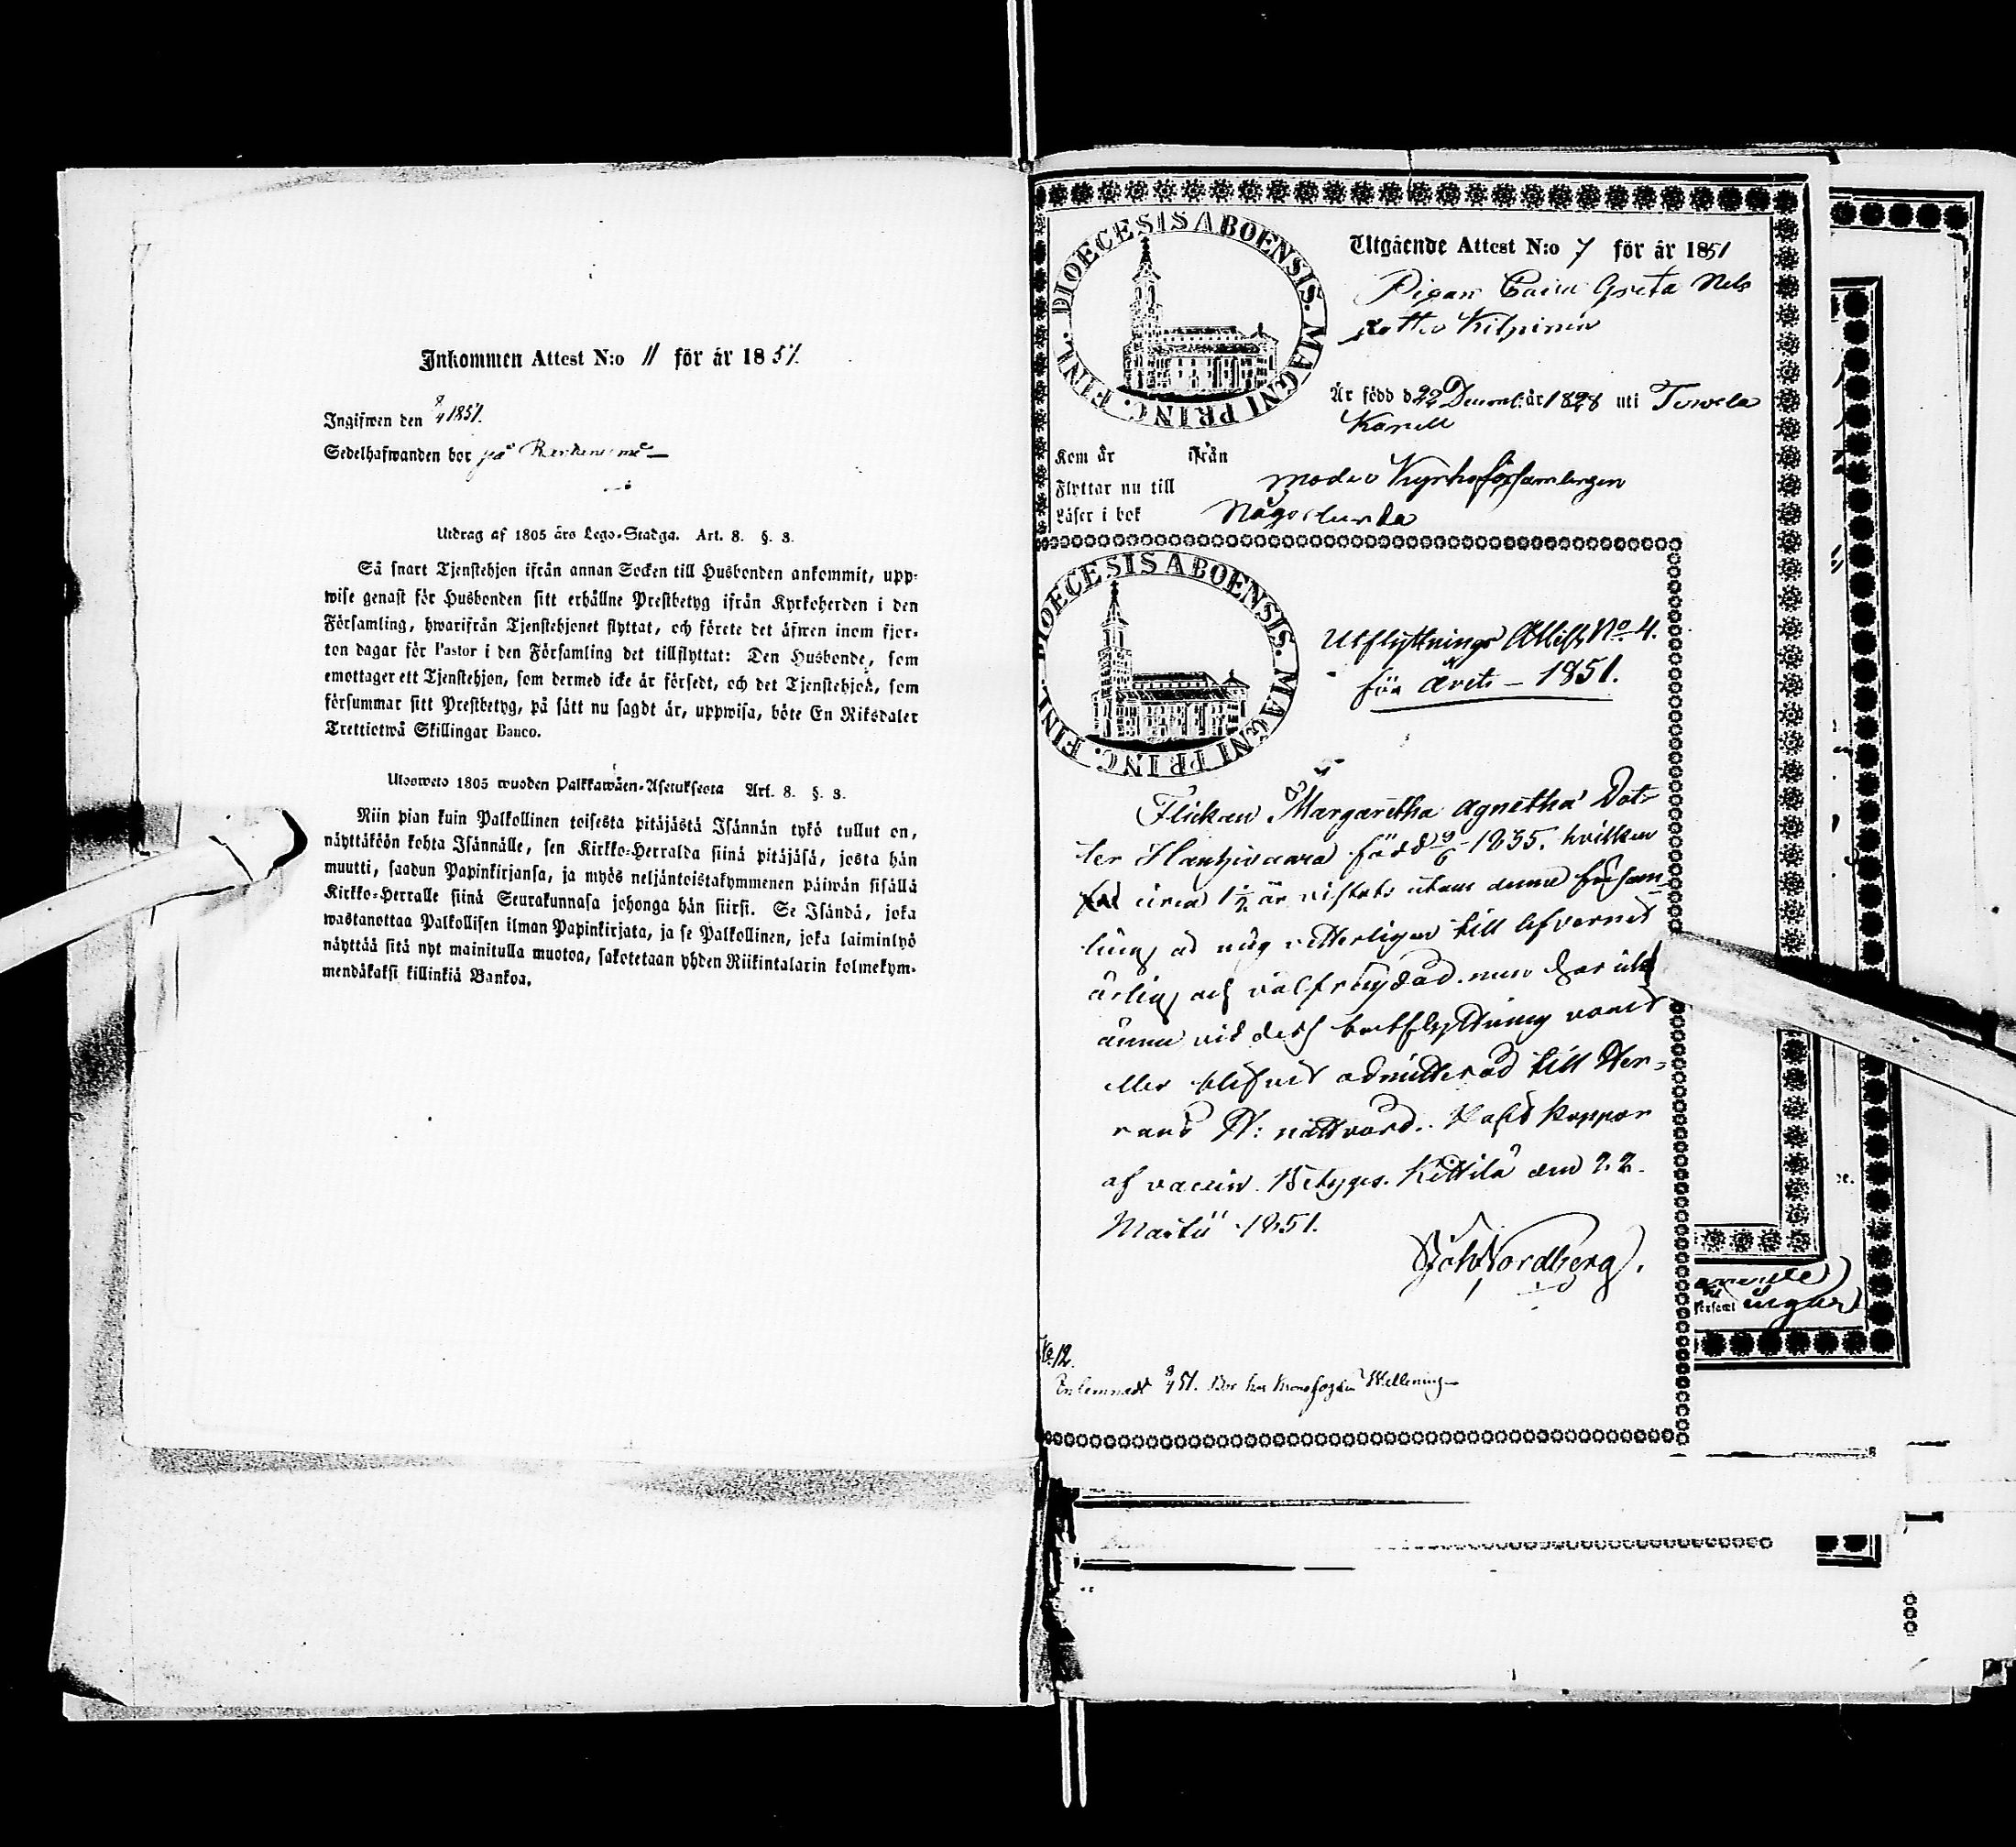 Inkommen Attest N:o 11 för år 1851.
Ingifwen den 9/4 1851.
Sedelhafwanden bor på
Utdrag af 1805 års Lego-Stadga. Art. 8. §. 3.
Så snart Tjenstehjon ifrån annan Socken till Husbonden ankommit, upp-
wise genast för Husbonden sitt erhållne Prestbetyg ifrån Kyrkoherden i den
Församling, hwarifrån Tjenstehjonet flyttat, och förete det äfwen inom fjor-
ton dagar för Pastor i den Församling det tillflyttat: Den Husbonde, som
emottager ett Tjenstehjon, som dermed icke är försedt, och det Tjenstehjon, som
försummar sitt Prestbetyg, på sätt nu sagdt är, uppwisa, böte En Riksdaler
Trettiotwå Skillingar Banco.
Ulosweto 1805 wuoden Palkkawäen-Asetuksesta Art. 8. §. 3.
Niin pian kuin Palkollinen toisesta pitäjästä Isännän tykö tullut on,
näyttäköön kohta Isännälle, sen Kirkko-Herralda siinä pitäjäsä, josta hän
muutti, saadun Papinkirjansa, ja myös neljäntoistakymmenen päiwän sisällä
Kirkko-Herralle siinä Seurakunnasa johonga hän siirsi. Se Isändä, joka
wastanottaa Palkollisen ilman Papinkirjata, ja se Palkollinen, joka laiminlyö
näyttää sitä nyt mainitulla muotoa, sakotetaan yhden Riikintalarin kolmekym-
mendäkaksi killinkiä Bankoa.
DIOECESIS ABOENSIS. MAGNI PRINC. FINL.
Utgående Attest N:o 7 för år 1851
Pigan Caisa Greta Nels
dotter Kilpinen
Är född d 22 Decemb. år 1828 uti
Kom år ifrån
Flyttar nu till moder Kyrkoförsamlingen
Läser i bok Någorlunda
DIOECESIS ABOENSIS. MAGNI PRINC. FINL.
Utflyttnings Attest No 4.
för året – 1851.
Flickan Margaretha Agnetha Dot-
ter född 9/6 1835. hvilken
circa 1½ år vistats utom denna försam-
ling, är mig vetterligen till lefvernet
ärlig och välfrejdad. men har icke
ännu vid dess bortflyttning varit
eller blifvit admitterad till Her-
rans H: nattvard. Haft koppor
af vaccin. Betygas. Kittilä den 22
Martii 1851.
Joh Nordberg.
No 12.
Inlemnadt 9/4 51. Bor hos Kronofogden